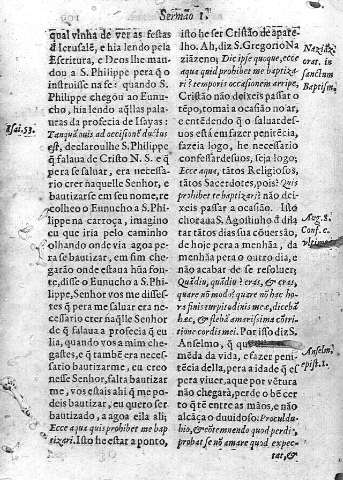 Sermão 1.
qual vinha de ver as festas
d Ierusalẽ, e hia lendo pela
Escritura, e Deos lhe man-
dou a S. Philippe pera q̃ o
instruisse na fe: quando S.
Philippe chegou ao Eunu-
cho, hia lendo aq̃llas palau-
ras da profecia de Isayas:
Isai. 53.
Tanquã ouis ad occisionẽ ductus
est, declaroulhe S. Philippe
q̃ falaua de Cristo N. S. e q̃
pera se saluar, era necessa-
rio crer naquelle Senhor, e
baptizarse em seu nome, re-
colheo o Eunucho a S. Phi-
lippe na carroça, imagino
eu que iria pelo caminho
olhando onde via agoa pe-
ra se bautizar, em sim che-
garão onde estaua hũa fon-
te, disse o Eunucho a S. Phi-
lippe, Senhor vos me disses-
tes q̃ pera me saluar era ne-
cessario crer naq̃lle Senhor
de q̃ falaua a profecia q̃ eu
lia, quando vos a mim che-
gastes, e q̃ tambẽ era neces-
sario bautizarme, eu creo
nesse Senhor, falta bautizar
me, vos estais ahi q̃ me po-
deis bautizar, eu quero ser
bautizado, a agoa eila ali;
Ecce aqua quis prohibet me bap
tizari. Isto he estar a ponto,
isto he ser Cristão de apare-
lho. Ah, diz S. Gregorio Na
ziãzeno; Dic ipse quoque, ecce
aqua quid prohibet me baptiza-
ri? temporis occasionem arripe,
Cristão não deixeis passar o
tẽpo, tomai a ocasião no ar,
e entendendo q̃ o saluardes-
uos está em fazer penitẽcia,
fazeia logo, he necessario
confessardesuos, seja logo;
Ecce aqua, tãtos Religiosos,
tãtos Sacerdotes, pois? Quis
prohibet te baptizari? não de-
ixeis passar a ocasião. Isto
chorana S. Agostinho q̃ dila
tar tãtos dias sua cõuersão,
de hoje pera a menhãa, da
menhãa pera o outro dia, e
não acabar de se resoluer;
Quãdiu, quãdiu? cras, & cras,
quare nõ modo? quare nõ hac ho
ra finis turpitudinis meæ, diceba
hæc, & flebã amarissima cõtri-
tione cordis mei. Por isso diz S.
Anselmo, q̃ que
mẽda da vida, e fazer peni-
tẽcia della, pera a idade q̃ es
pera viuer, aque por vẽtura
não chegará, perde o bẽ cer
to q̃ tẽ entre as mãos, e não
alcãça o duuidoso: Proculdu-
bio, & cõtemnendo quod perdit,
probat se nõ amare quod expec-
tat, &
Naziã.
orat. in
sanctum
Baptism.
Aug. 8.
Conf. c.
vltimo.
Anselm.
epist. 1.